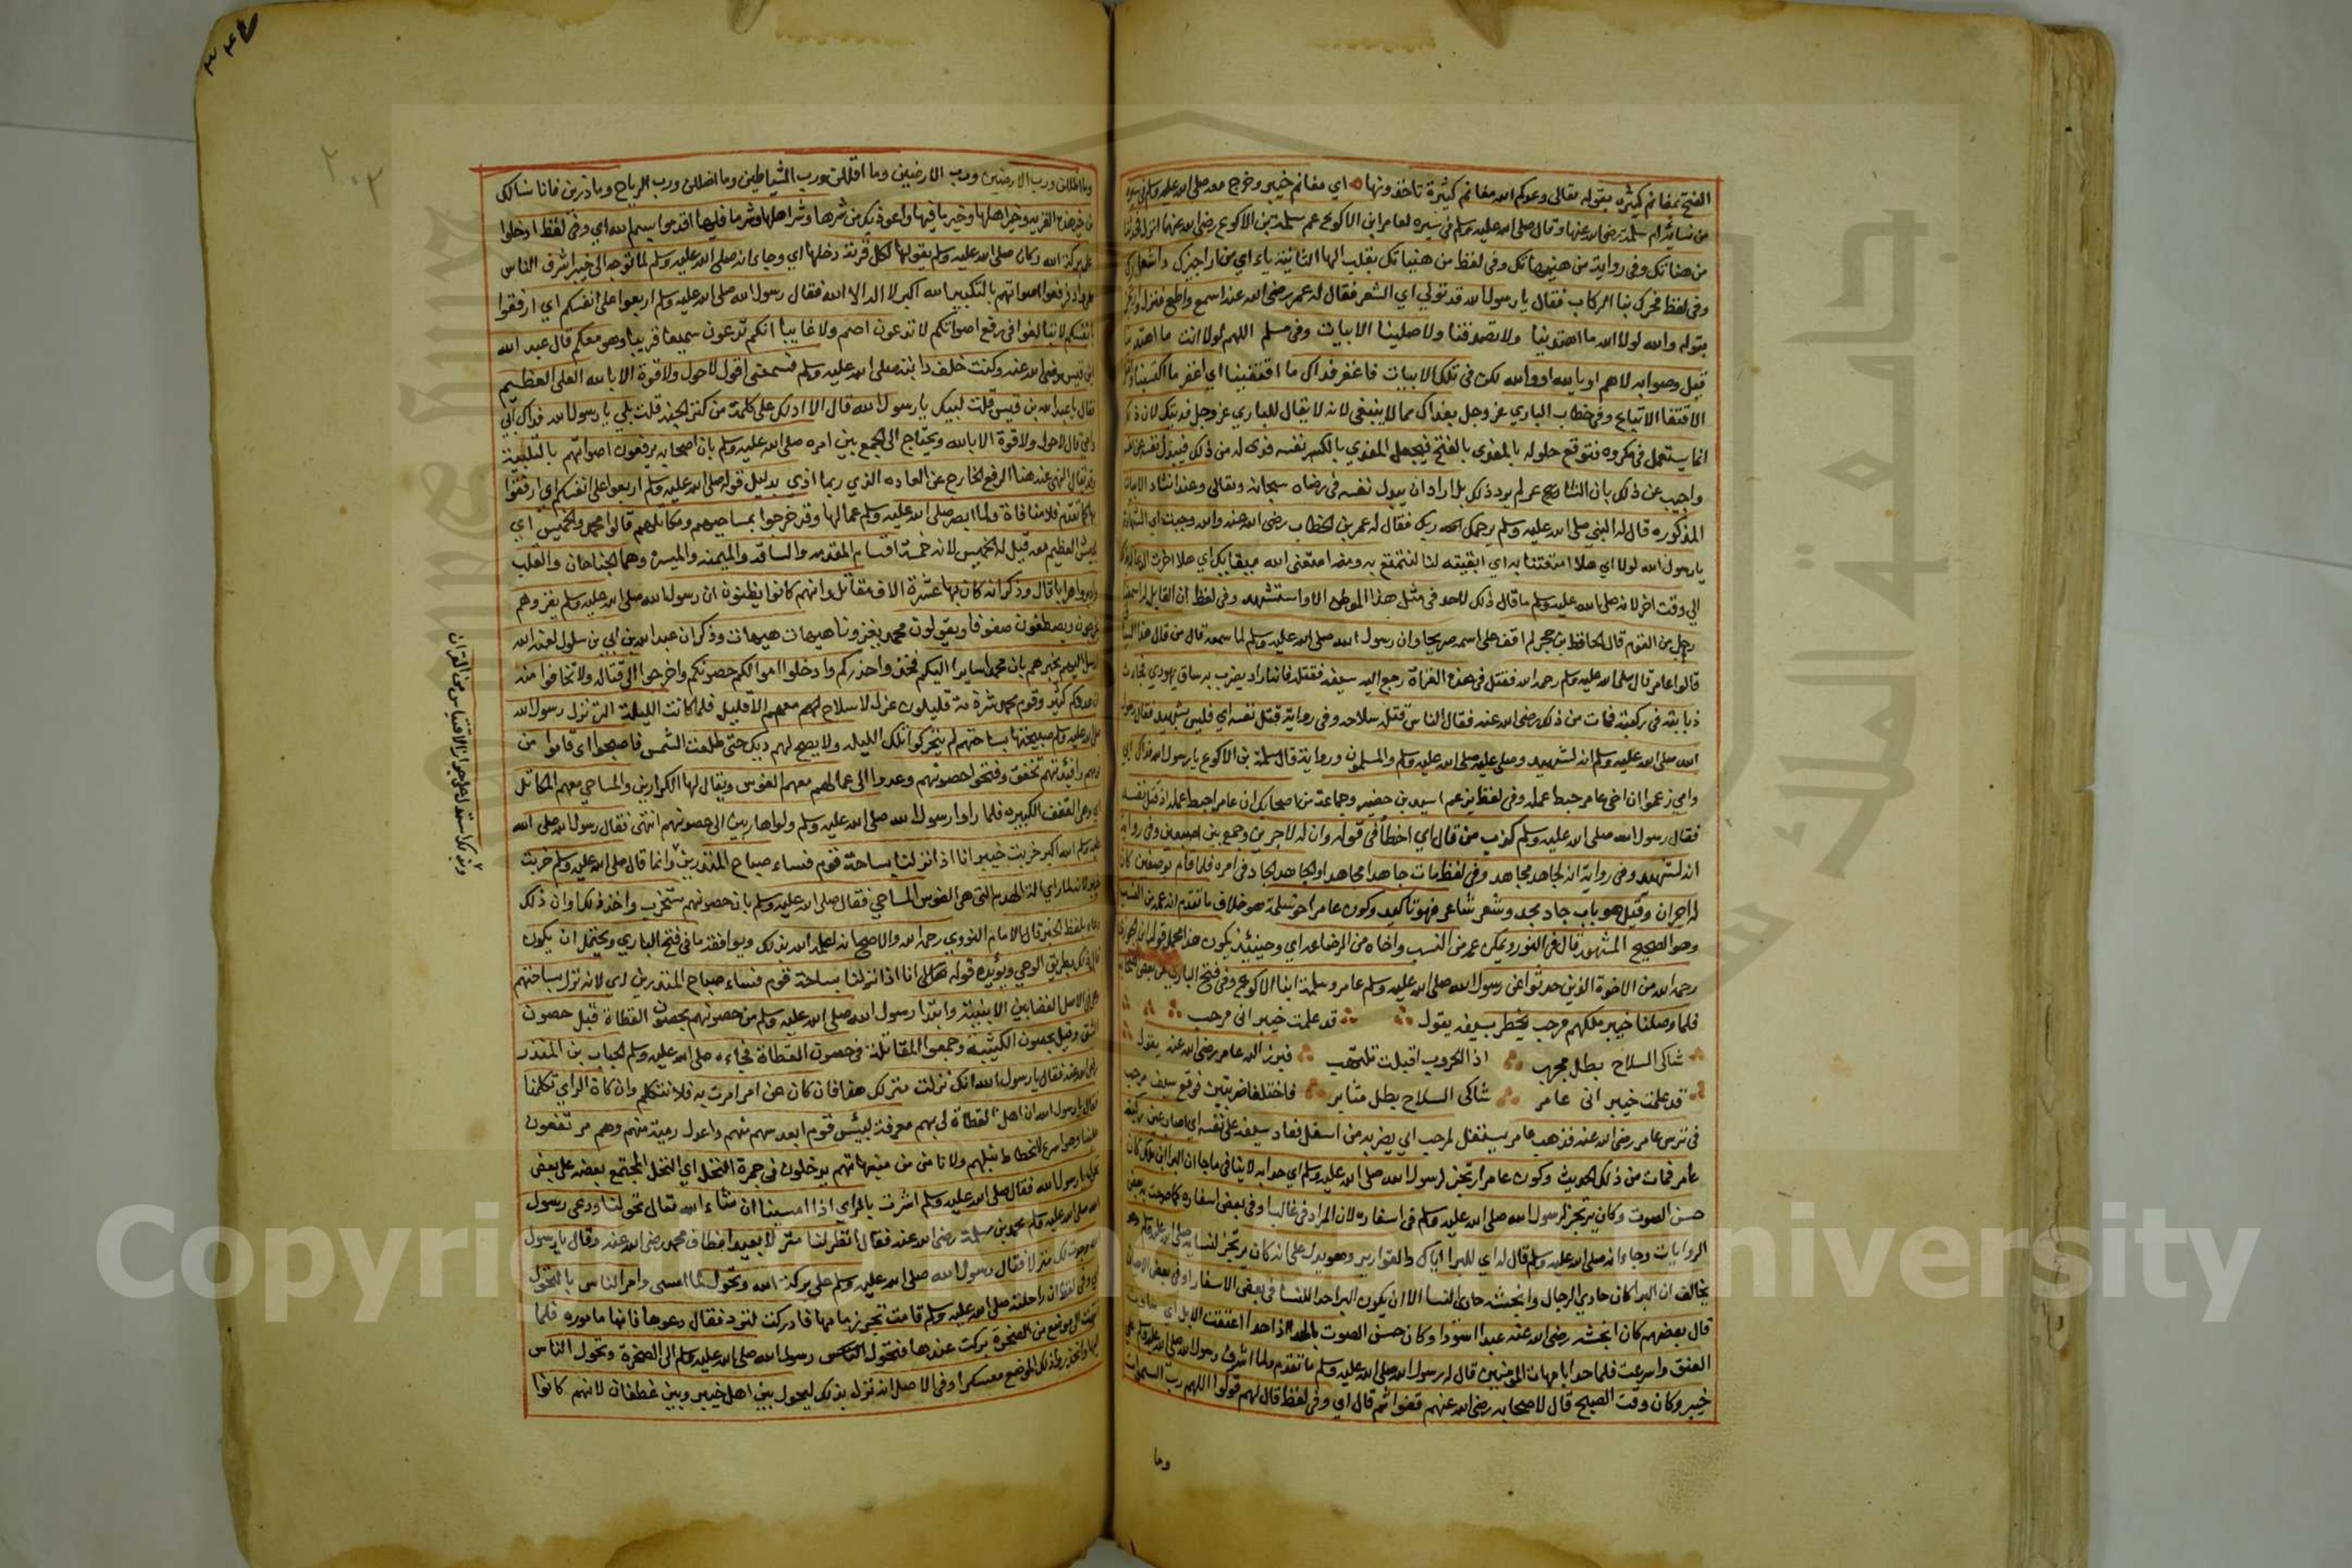 الفتح بمغانم كثيرة بقوله تعالى وعدكم الله مغانم كثيرة تاخذونها اي مغانم خيبر وخرج معه صلى الله عليه وسلم
من نسائه ام سلمة رضي الله عنها وقال صلى الله عليه وسلم في سيره لعامر ابن الاكوع عم سلمة بن الاكوع رضي الله عنهما انزل
من هناتك وفي رواية من هنيهاتك وفي لفظ من هنياتك بقلب الها الثانية ياء اي من اراجيزك
وفي لفظ فحرك بنا الركاب فقال يا رسول الله قد تولي اي الشعر فقال له عمر رضي الله عنه اسمع واطع فنزل
بقوله والله لولا الله ما اهتدينا ولا تصدقنا ولا صلينا الابيات وفي مسلم اللهم لولا انت ما اهتدينا
قيل وصوابه لاهم او يا الله او والله لكن في تلك الابيات فاغفر فداك ما اقتفينا اي اغفر ما اكتسبنا
الاقتفا الاتباع وفي خطاب الباري عز وجل بفداك مما لا ينبغي لانه لا يقال للباري عز وجل فديتك لان ذلك
انما يستعمل في مكروه متوقع حلوله بالمفدى بالفتح فيجعل المفدي بالكسر نفسه فدى له من ذلك فيبذل نفسه
واجيب عن ذلك بان الشاعر لم يرد ذلك بل اراد ان يبذل نفسه في رضاه سبحانه وتعالى وعند انشاد الابيات
المذكوره قال له النبي صلى الله عليه وسلم يرحمك ربك فقال له عمر بن الخطاب رضي الله عنه والله وجبت اي الشهادة
يا رسول الله لولا اي هلا امتعتنا به اي ابقيته لنا لنتمتع به ومنه امتعني الله ببقائك اي هلا اخرت
الى وقت اخر لانه صلى الله عليه وسلم ما قال ذلك لاحد في مثل هذا الموطن الا واستشهد وفي لفظ ان القايل
رجل من القوم قال الحافظ بن حجر لم اقف على اسمه صريحا وان رسول الله صلى الله عليه وسلم لما سمعه قال من قال هذا
قالوا عامر قال صلى الله عليه وسلم رحمه الله فقتل في هذه الغزاة رجع اليه سيفه فقتله فانه اراد يضرب به ساق يهودي فجاءت
ذبابته في ركبته فمات من ذلك رضي الله عنه فقال الناس قتله سلاحه وفي رواية قتل نفسه اي فليس شهيد فقال رسول
الله صلى الله عليه وسلم انه لشهيد وصلى عليه صلى الله عليه وسلم والمسلمون ورواية قال سلمة بن الاكوع يا رسول الله فداك ابي
وامي زعموا ان اخي عامر حبط عمله وفي لفظ يزعم اسيد بن حضير وجماعة من اصحابك ان عامرا حبط عمله اذ قتل نفسه
فقال رسول الله صلى الله عليه وسلم كذب من قال اي اخطأ في قوله وان له لاجرين وجمع بين اصبعيه وفي رواية
انه لشهيد وفي رواية انه لجاهد مجاهد وفي لفظ مات جاهدا مجاهدا والجاهد الجاد في امره فلما قام بوصفين كان
له اجران وقيل هو باب جاد مجد وشعر شاعر فهو تاكيد وكون عامرا اخو سلمة هو خلاف ما تقدم انه عمه من النسب
وهو الصحيح المشهور قال في النور ويمكن عمه من النسب واخاه من الرضاعه اي وحينئذ يكون
رحمه الله من الاخوة الذين حدثوا عن رسول الله صلى الله عليه وسلم عامر وسلمة ابنا الاكوع وفي فتح الباري
فلما وصلنا خيبر ملكهم مرحب يخطر بسيفه يقول قد علمت خيبر اني مرحب
شاكى السلاح بطل مجرب اذا الحروب اقبلت تلتهب فبرز اليه عامر رضي الله عنه يقول
قد علمت خيبر اني عامر شاكى السلاح بطل مثابر فاختلفا ضربتين فوقع سيف مرحب
في ترس عامر رضي الله عنه فذهب عامر يستفل لمرحب اي يضربه من اسفل فعاد سيفه على نفسه اي اصاب عين ركبته
عامر فمات من ذلك الحديث وكون عامرا رتجز لرسول الله صلى الله عليه وسلم اي حدا به لا ينافي ما جا ان البرا بن مالك كان
حسن الصوت وكان يرتجز لرسول الله صلى الله عليه وسلم في اسفاره لان المراد في غالبها وفي بعض اسفاره كما صرحت به بعض
الروايات وجاء انه صلى الله عليه وسلم قال له اي للبرا اياك والقوارير وهو يدل على انه كان يرتجز لنسايه صلى الله عليه وسلم
يخالف ان البرا كان حادي الرجال وانجشه حادي النسا الا ان يكون البرا حدا للنسا في بعض الاسفار
قال بعضهم كان انجشه رضي الله عنه عبدا اسودا وكان حسن الصوت بالحدا اذا حدا اعتنقت الابل اي
العنق واسرعت فلما حدا بامهات المومنين قال له رسول الله صلى الله عليه وسلم ما تقدم ولما اشرف رسول الله صلى الله عليه وسلم على
خيبر وكان وقت الصبح قال لاصحابه رضي الله عنهم قفوا ثم قال اي وفي لفظ قال لهم قولوا اللهم رب السموات
وما
وما اظللن ورب الارضين ورب الارضين وما اقللن ورب الشياطين وما اضللن ورب الرياح وما ذرين فانا نسالك
من خير هذه القرية وخير اهلها وخير ما فيها واعوذ بك من شرها وشر اهلها وشر ما فيها اقدموا بسم الله اي وفي لفظ ادخلوا
على بركة الله وكان صلى الله عليه وسلم يقولها لكل قرية دخلها اي وجاء انه صلى الله عليه وسلم لما توجه الى خيبر اشرف الناس
على واد فرفعوا اصواتهم بالتكبير الله اكبر لا اله الا الله فقال رسول الله صلى الله عليه وسلم اربعوا على انفسكم اي ارفقوا
بانفسكم لا تبالغوا في رفع اصواتكم لا تدعون اصم ولا غايبا انكم تدعون سميعا قريبا وهو معكم قال عبد الله
ابن قيس رضي الله عنه وكنت خلف دابته صلى الله عليه وسلم فسمعني اقول لا حول ولا قوة الا بالله العلي العظيم
فقال يا عبد الله بن قيس قلت لبيك يا رسول الله قال الا ادلك على كلمة من كنز الجنة قلت بلى يا رسول الله فداك ابي
وامي قال لا حول ولا قوة الا بالله ويحتاج الى الجمع بين امره صلى الله عليه وسلم بان اصحابه يرفعون اصواتهم بالتلبية
وقد يقال المنهي عنه هنا الرفع الخارج عن العاده الذي ربما اذي بدليل قوله صلى الله عليه وسلم اربعوا على انفسكم اي ارفقوا
بها كما تقدم فلا منافاة ولما ابصر صلى الله عليه وسلم عمالها وقد خرجوا بمساحيهم ومكاتلهم قالوا محمد والخميس اي
الجيش العظيم معه قيل له الخميس لانه خمسة اقسام المقدمه والساقه والميمنه والميسره وهما الجناحان والقلب
وادبروا هرابا قال وذكر انه كان بها عشرة الاف مقاتل وانهم كانوا يظنون ان رسول الله صلى الله عليه وسلم يغزوهم
يخرجون ويصطفون صفوفا ويقولون محمد يغزونا هيهات هيهات وذكر ان عبد الله بن ابي بن سلول لعنه الله
ارسل اليهم يخبرهم بان محمدا سايرا اليكم فخذوا حذركم وادخلوا اموالكم حصونكم واخرجوا الى قتاله ولا تخافوا منه
ان عددكم كثير وقوم محمد شرذمة قليلون عزل لا سلاح لهم معهم الا قليل فلما كانت الليلة التي نزل رسول الله
صلى الله عليه وسلم صبيحتها بساحتهم لم يتحركوا تلك الليله ولا يصح لهم ديك حتى طلعت الشمس فاصبحوا اي قاموا من
نومهم وافئدتهم تخفق وفتحوا حصونهم وغدوا الى عمالهم معهم الفوس ويقال لها الكرازين والمساحي معهم المكاتل
اي وهي القفف الكبيره فلما راوا رسول الله صلى الله عليه وسلم ولوا هاربين الى حصونهم انتهى فقال رسول الله صلى الله
عليه وسلم الله اكبر خربت خيبر انا اذا نزلنا بساحة قوم فساء صباح المنذرين وانما قال صلى الله عليه وسلم خربت
خيبر لانه لما راي الة الهدم التي هي الفوس المساحي فقال صلى الله عليه وسلم بان حصونهم ستخرب واخذ ذلك وان ذلك
بلفظ الخبر قال الامام النووي رحمه الله والاصح انه اعلمه الله بذلك ويوافقه ما في فتح الباري ويحتمل ان يكون
قال ذلك بطريق الوحي ويؤيده قوله انا اذا نزلنا بساحة قوم فساء صباح المنذرين اي لانه نزل بساحتهم
وابتدا رسول الله صلى الله عليه وسلم من حصونهم بحصون القطاة قبل حصون
الشق وقبل حصون الكتيبة وجمعوا المقاتلة في حصون القطاة فجاءه صلى الله عليه وسلم الحباب بن المنذر
رضي الله عنه فقال يا رسول الله انك نزلت منزلك هذا فان كان عن امر امرت به فلا نتكلم وان كان الراي تكلمنا
فقال يا رسول الله ان اهل القطاة لي بهم معرفة ليس قوم ابعد سهم منهم واعدل رمية منهم وهم مرتفعون
علينا وهو اسرع لانحطاط نبلهم ولا نامن من بياتهم يدخلون في حمرة النخل اي النخل المجتمع بعضه على بعض
تحول يا رسول الله فقال صلى الله عليه وسلم اشرت بالراي اذا امسينا ان شاء الله تعالى تحولنا ودعى رسول
الله صلى الله عليه وسلم محمد بن مسلمة رضي الله عنه فقال انظر لنا منزلا بعيدا فطاف محمد رضي الله عنه وقال يا رسول
الله وجدت لك منزلا فقال رسول الله صلى الله عليه وسلم على بركة الله وتحول لما امسى وامر الناس بالتحول
اي وفي لفظ ان راحلته صلى الله عليه وسلم قامت تجر زمامها فادركت لترد فقال دعوها فانها ماموره فلما
انتهت الى موضع من الصخرة بركت عندها فتحول رسول الله صلى الله عليه وسلم الى الصخرة وتحول الناس
اليها واتخذوا ذلك الموضع معسكرا وفي الاصل انه نزل بذلك ليحول بين اهل خيبر وبين غطفان لانهم كانوا
وبذلك استدل على جواز الاقتباس من القران
٢٠٢
Copyright © King Saud University
جامعة الملك سعود